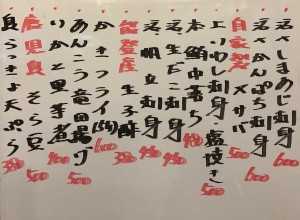 活さしまあじ刺身 600
活さかんぱち刺身 600
自家製 〆サバ 500
上いわし刺身 塩焼き 500
本鮪中落ち 480
活生だこ刺身 480
活帆立刺身 480
能登産 生子酢 500
かきフライ(4ケ) 600
あんこう竜田揚げ 500
いかと里芋煮 400
鹿児島 そら豆 500
らっきょ天ぷら 380